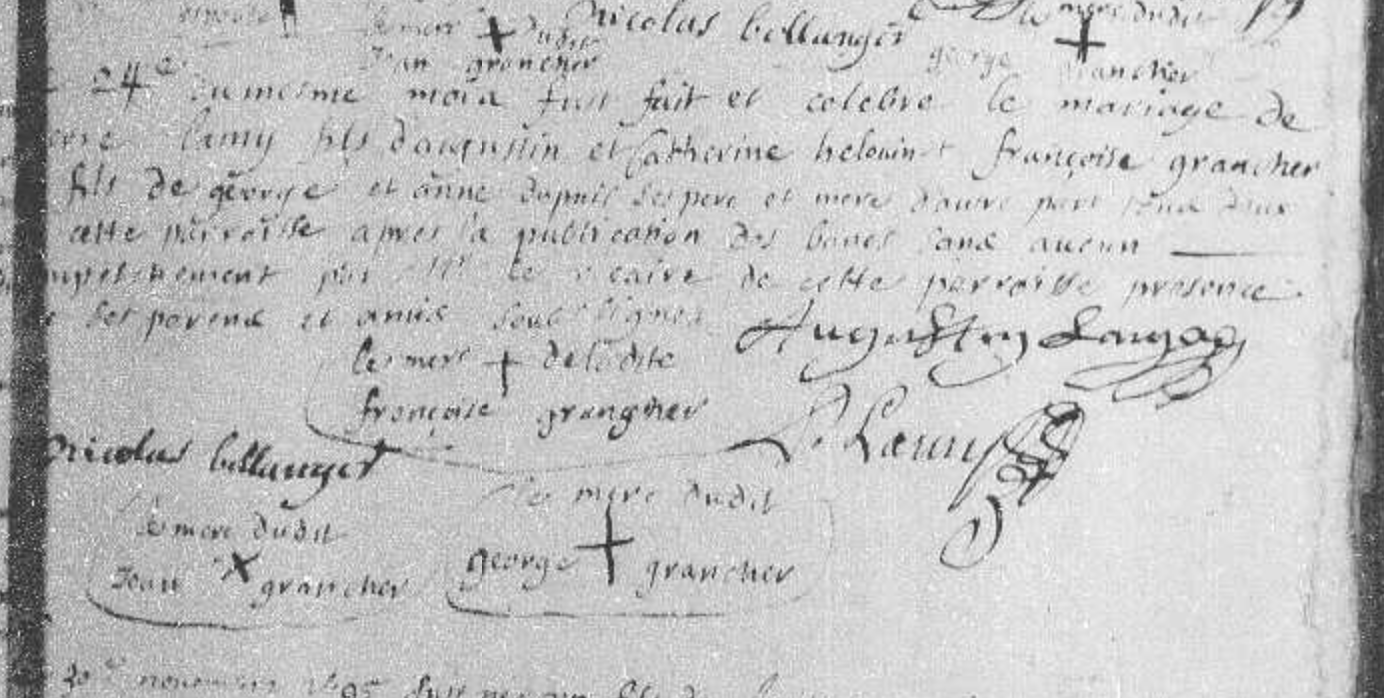 le merc dudit Nicolas bellanger le merc dudit
Jean grancher george grancher
24e du mesme mois fust fait et celebre le mariage de
lamy fils d'augustin et Catherine helouin et françoise grancher
fils de george et anne dupuis ses pere et mere d'autre part tous deux
cette parroisse apres la publication des bancs sans aucun
par Mr le vicaire de cette parroisse presence
ses parens et amis sous signes
Augustin Lamy
le merc de ladite
françoise grangher
P. Lamy
Nicolas bellanger
le merc dudit
george grancher
le merc dudit
Jean grancher
30e novembre